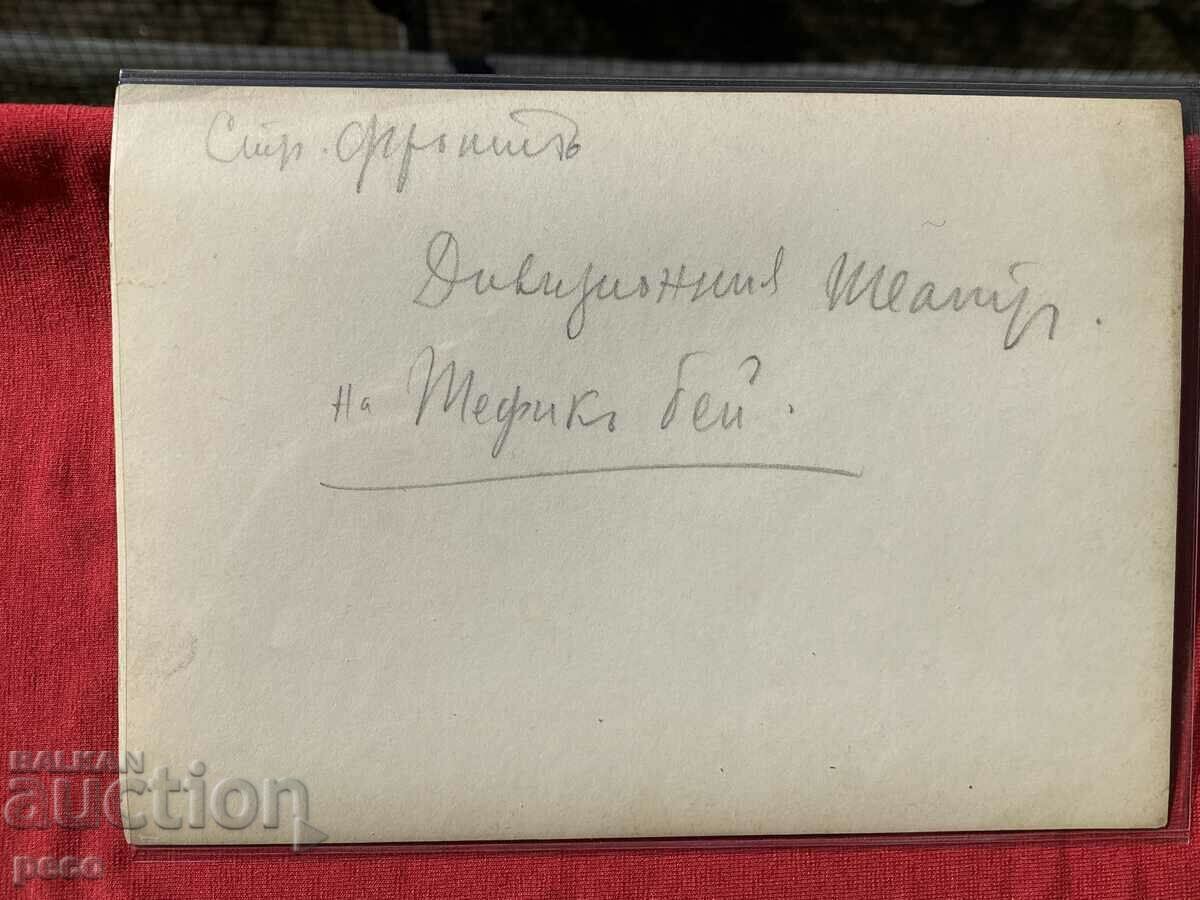 Стр. фронтъ
Дивизионния театръ.
на Шефикъ бей.
BALKAN
auction
peso